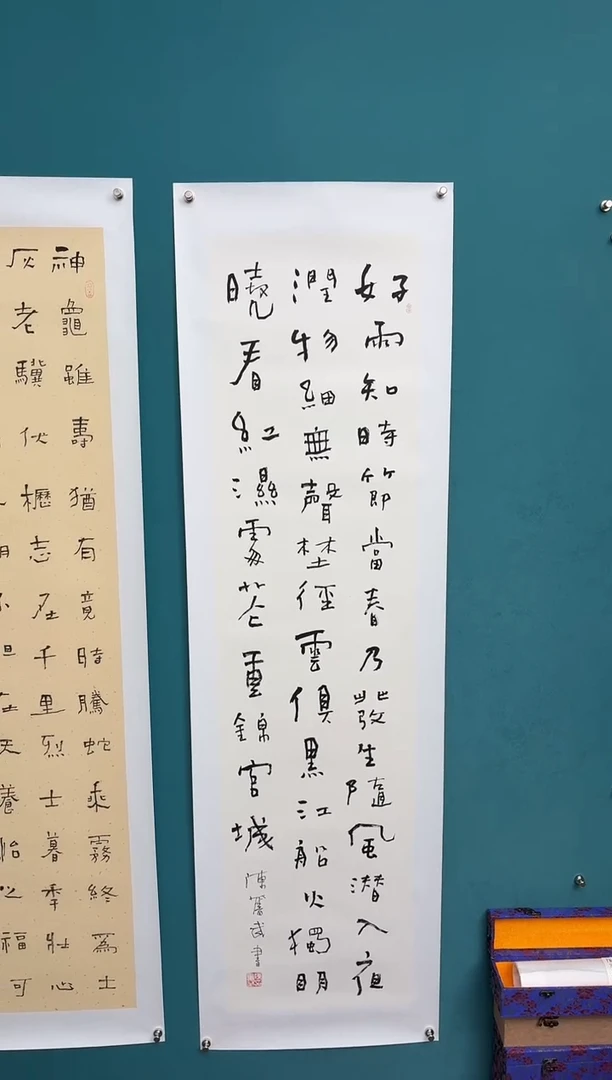 好雨知時節當春乃發生隨風潜入夜
潤物細無聲埜徑雲俱黑江船火獨明
曉看紅濕處花重錦官城
陳武書
神龜雖壽猶有竟時騰蛇乘霧終爲土
灰老驥伏櫪志在千里烈士暮年壯心
在天養怡之福可